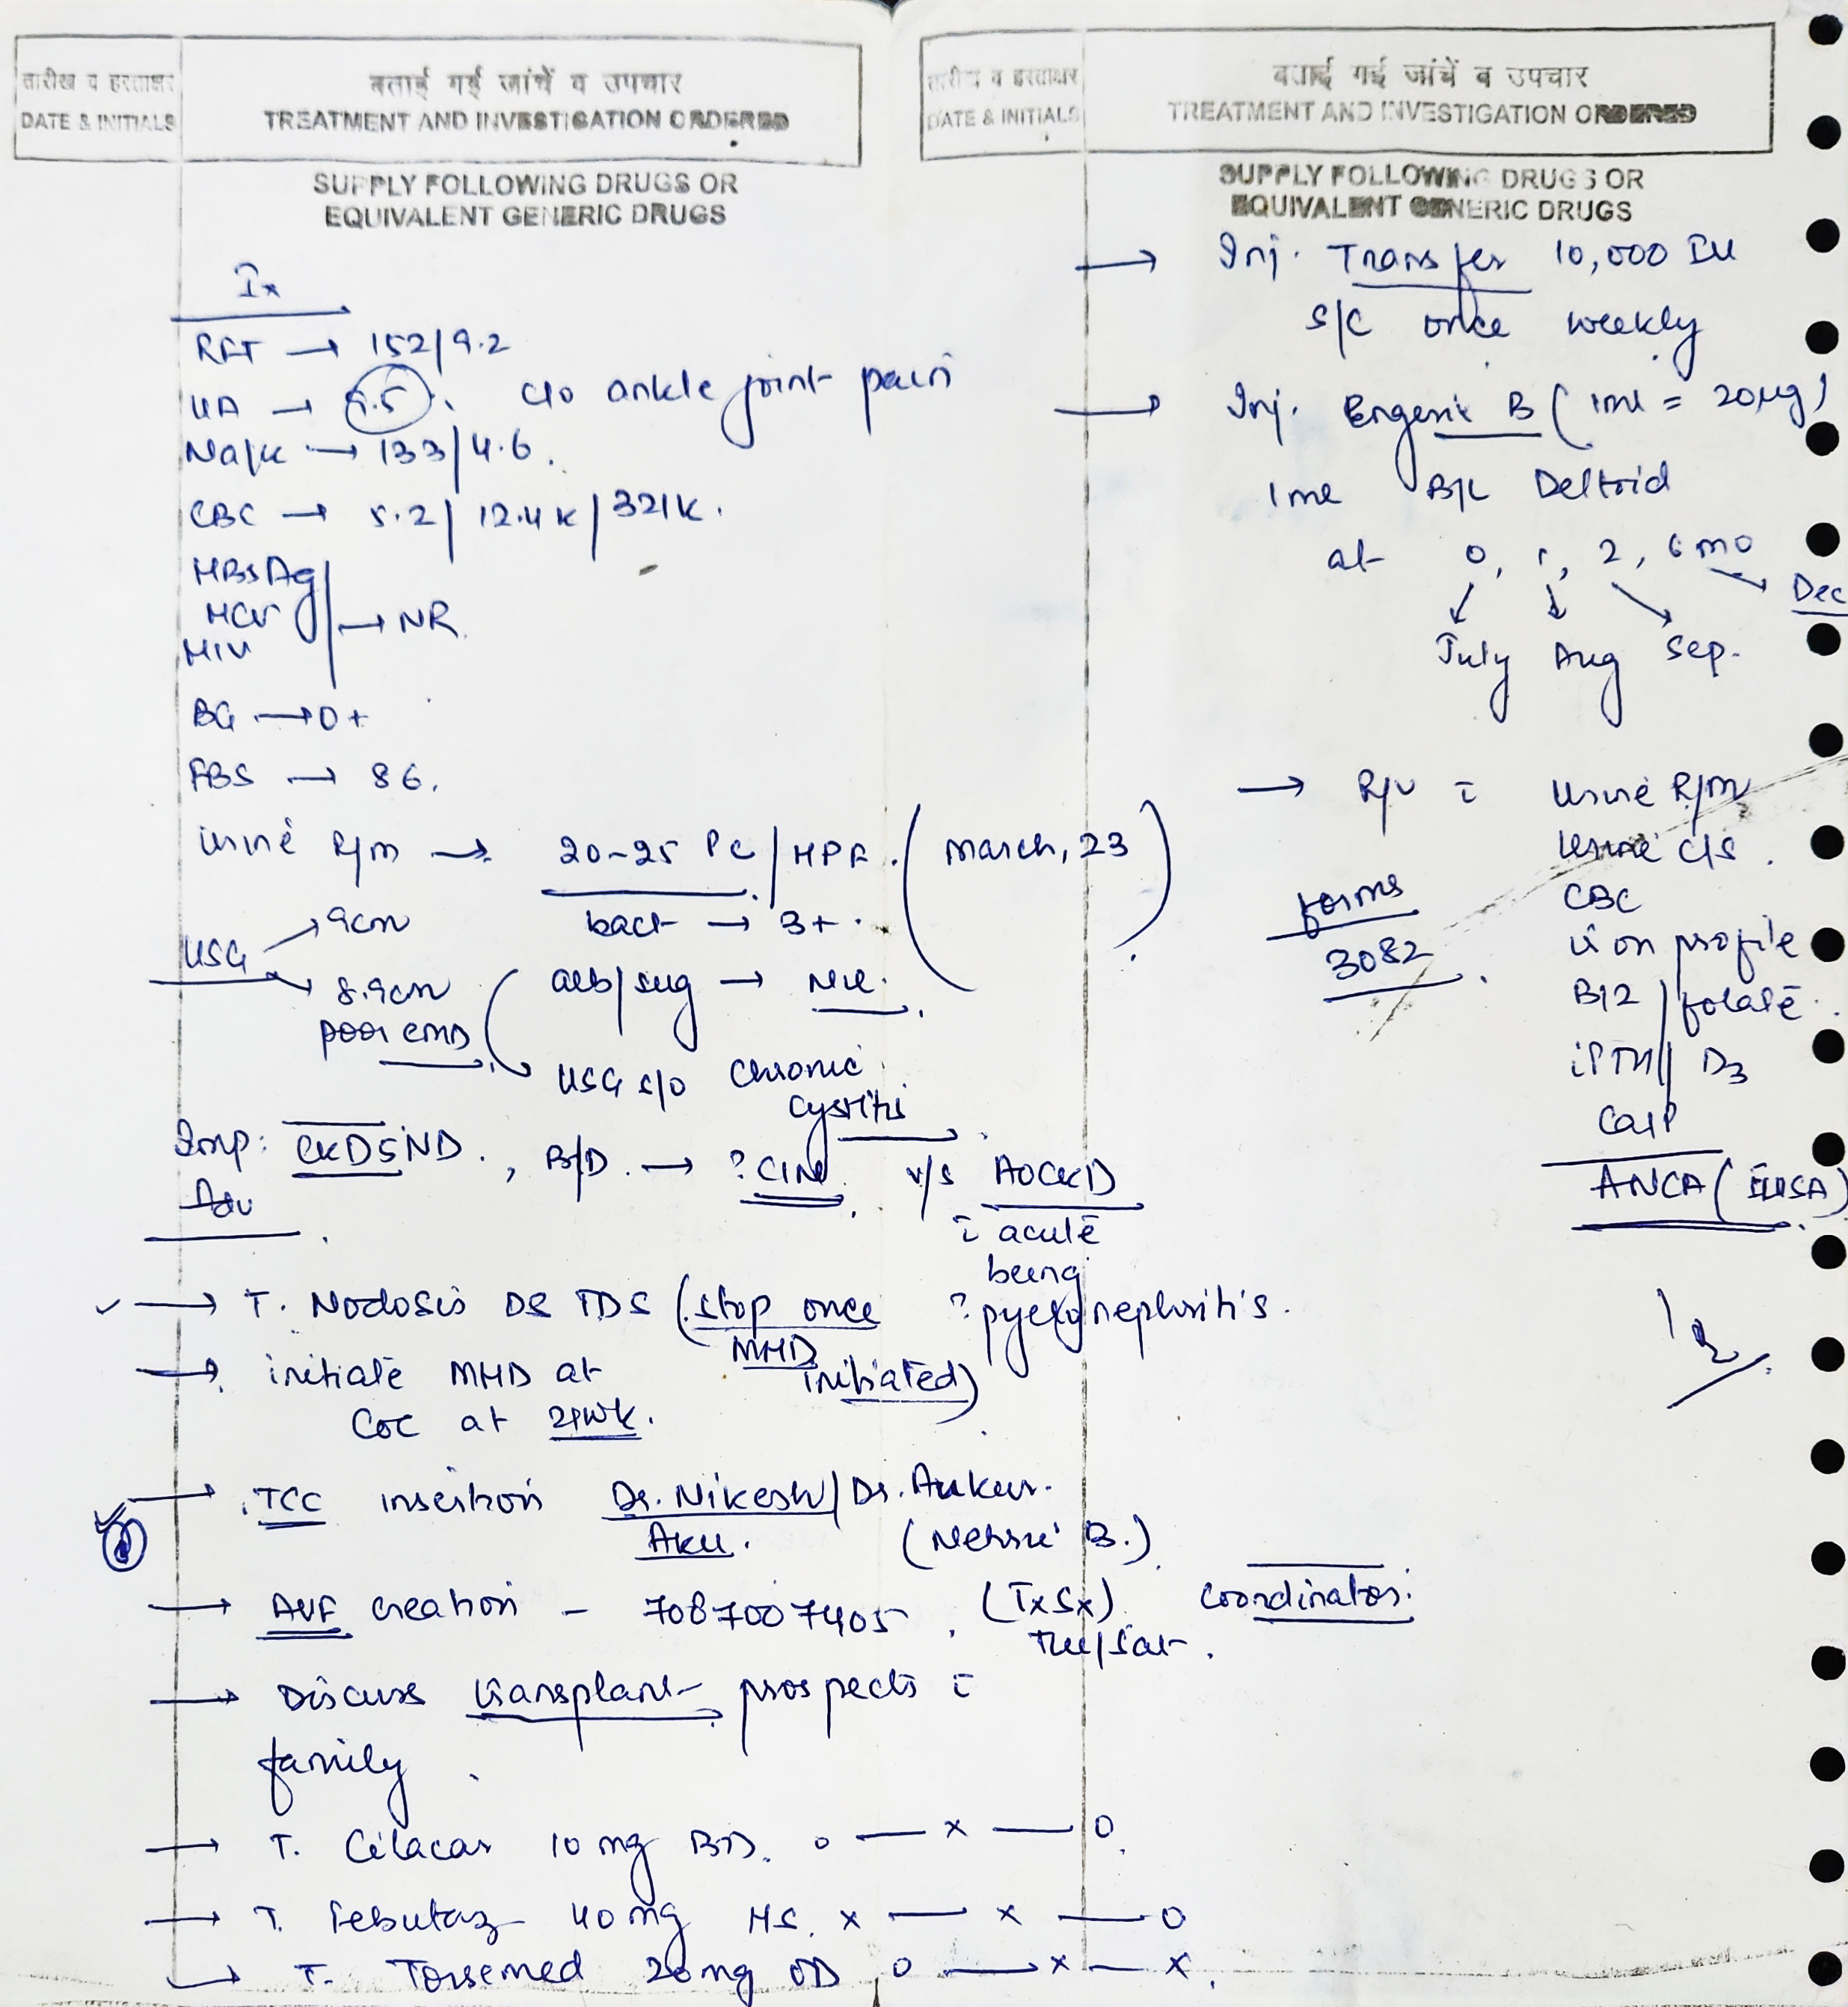 तारीख व हस्ताक्षर
DATE & INITIALS
बताई गई जांचें व उपचार
TREATMENT AND INVESTIGATION ORDERED
SUPPLY FOLLOWING DRUGS OR
EQUIVALENT GENERIC DRUGS
Ix
RFT → 152/9.2
UA → 9.5. c/o ankle joint pain
Na/K → 133/4.6.
CBC → 5.2/12.4K/321K.
HBsAg
HCV → NR
HIV
BG → O+
FBS → 86.
Urine R/m → 20-25 PC/HPF. (March, 23)
bact → 3+.
alb/sug → Nil.
USG → 9cm
→ 8.9cm
poor CMD
USG s/o Chronic
Cystitis
Imp: CKD5ND., B/D. → ?CIN v/s AOCKD
c̄ acute
being
?pyelonephritis.
Adv
→ T. Nodosis DS TDS (stop once
MHD
initiated)
→ initiate MHD at
COC at 2/wk.
→ TCC insertion Dr. Nikesh/Dr. Ankur.
AKU. (Nehru B.)
→ AVF creation - 7087007405, (TxSx) Coordinator.
Tue/Sat.
→ Discuss transplant prospects c̄
family.
→ T. Cilacar 10 mg BD. o — x — o.
→ T. Febutaz 40 mg HS. x — x — o
→ T. Torsemed 20 mg OD o — x — x.
तारीख व हस्ताक्षर
DATE & INITIALS
बताई गई जांचें व उपचार
TREATMENT AND INVESTIGATION ORDERED
SUPPLY FOLLOWING DRUGS OR
EQUIVALENT GENERIC DRUGS
→ Inj. Transfer 10,000 IU
S/C once weekly
→ Inj. Engerix B (1ml = 20µg)
1ml B/L Deltoid
at 0, 1, 2, 6 mo
Dec
July Aug Sep.
→ R/v c̄ Urine R/m
Urine c/s.
CBC
iron profile
B12/folate.
iPTH/D3
Ca/P
ANCA (ELISA)
forms
3082